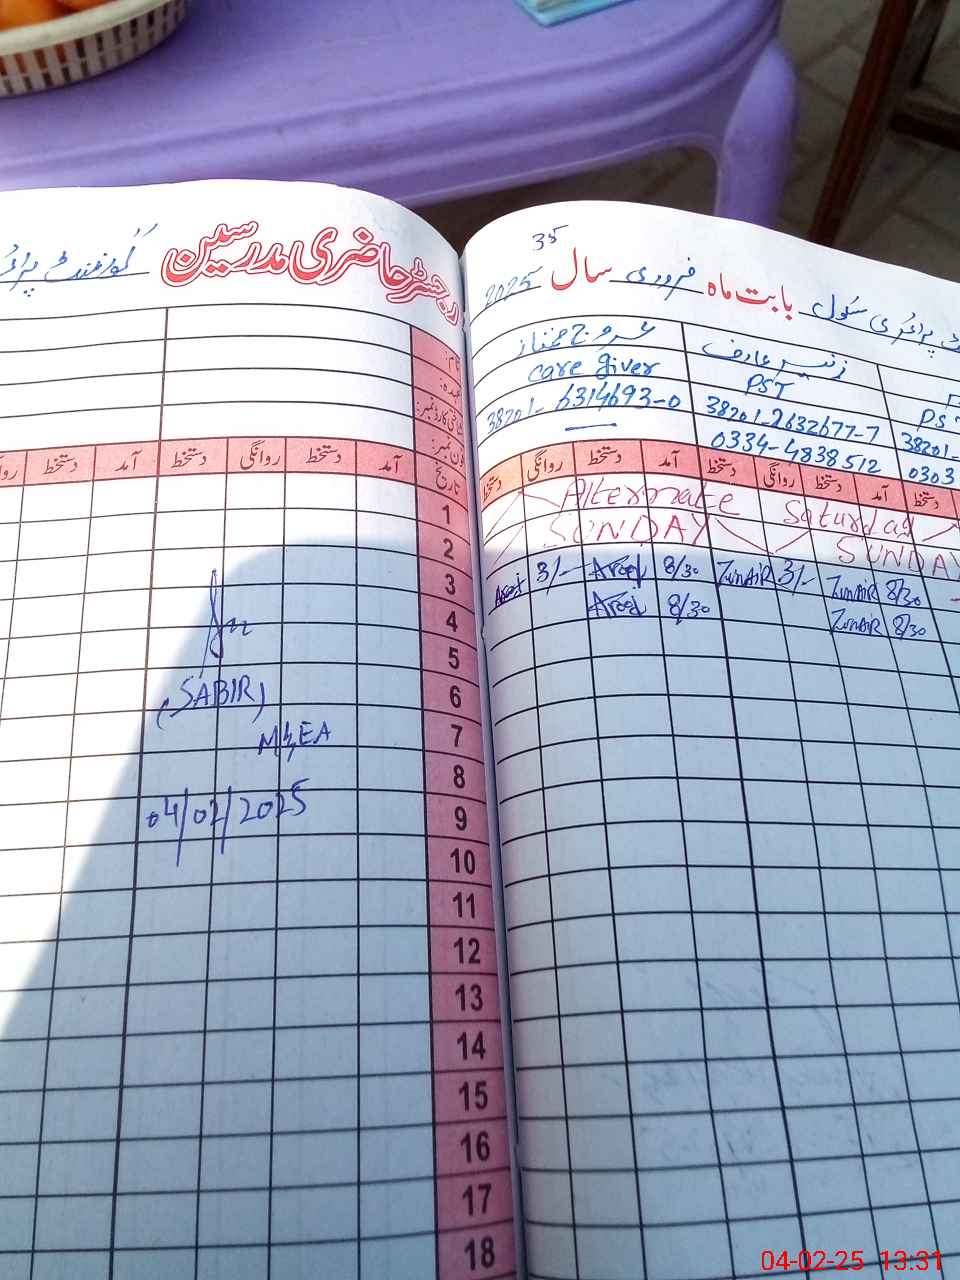 رجسٹر حاضری مدرسین
گورنمنٹ
نام:
عہدہ:
شناختی کارڈ نمبر:
فون نمبر:
تاریخ آمد دستخط روانگی دستخط آمد دستخط
1
2
3
4
5
6
7
8
9
10
11
12
13
14
15
16
17
18
(SABIR)
MEA
04/02/2025
35
پرائمری سکول بابت ماہ فروری سال 2025
عروج ممتاز
care giver
38201-6314693-0
—
زنیر عارف
PST
38201-2632677-7
0334-4838512
PST
38201-
0303
دستخط آمد دستخط روانگی دستخط آمد دستخط روانگی دستخط
Alternate Saturday
SUNDAY SUNDAY
8/30 3/- Zunair 8/30 Zunair 3/-
8/30 Zunair 8/30
04-02-25 13:31